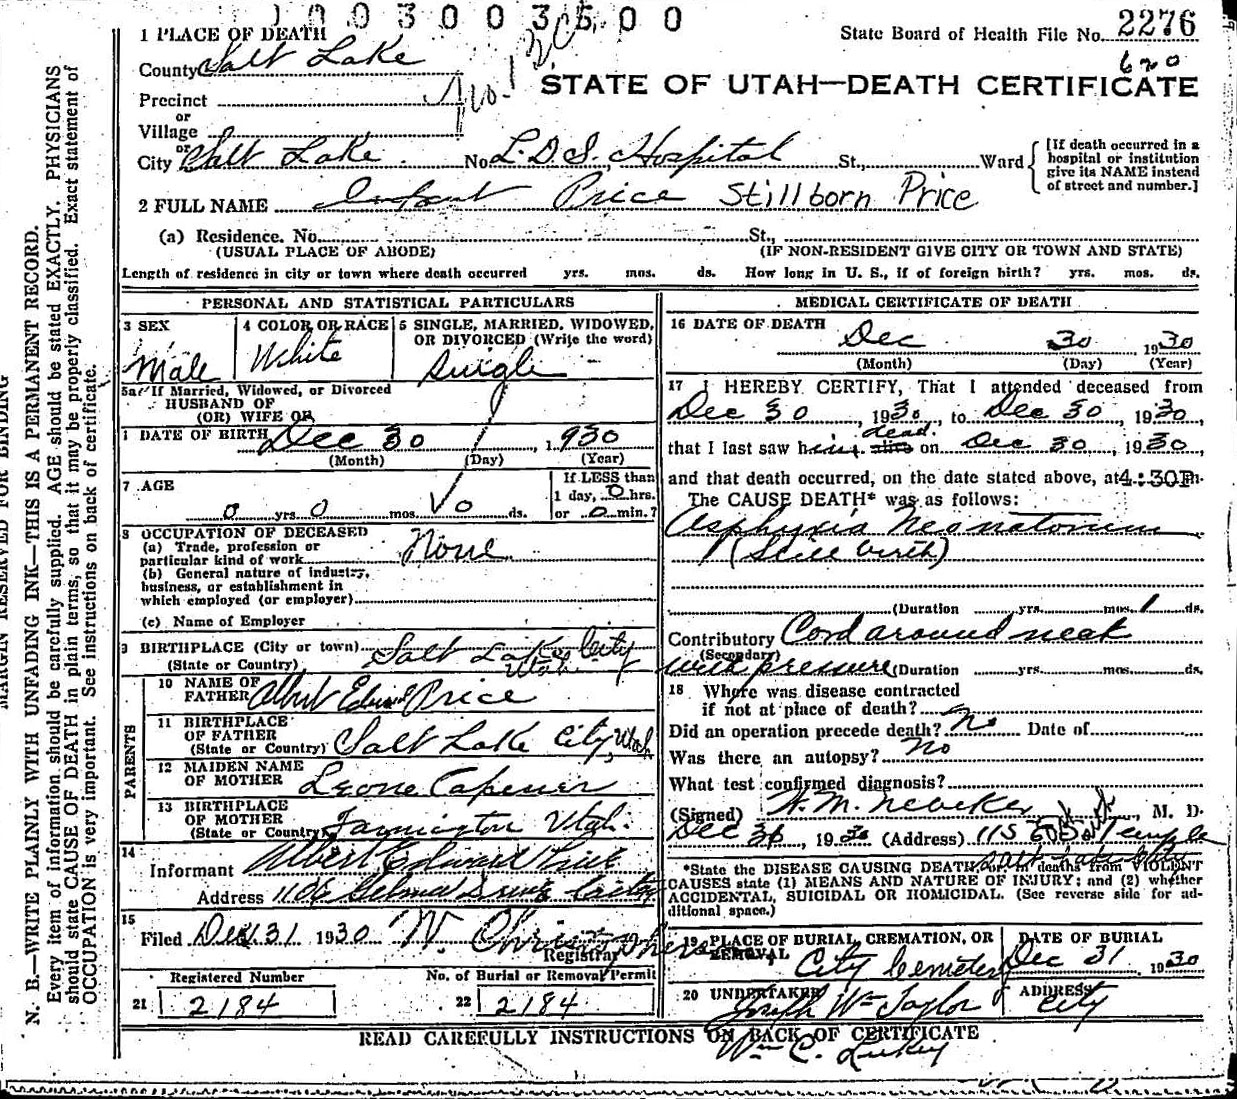 1 0 0 3 0 0 3 5 0 0
1 PLACE OF DEATH
State Board of Health File No. 2276
620
County Salt Lake
STATE OF UTAH—DEATH CERTIFICATE
Precinct
or
Village
or
City Salt Lake No. L.D.S. Hospital St., Ward
[If death occurred in a hospital or institution give its NAME instead of street and number.]
2 FULL NAME Infant Price Stillborn Price
(a) Residence. No. St.,
(USUAL PLACE OF ABODE) (IF NON-RESIDENT GIVE CITY OR TOWN AND STATE)
Length of residence in city or town where death occurred yrs. mos. ds. How long in U. S., if of foreign birth? yrs. mos. ds.
PERSONAL AND STATISTICAL PARTICULARS
3 SEX Male
4 COLOR OR RACE White
5 SINGLE, MARRIED, WIDOWED, OR DIVORCED (Write the word) Single
5a If Married, Widowed, or Divorced
HUSBAND OF
(OR) WIFE OF
DATE OF BIRTH Dec 30, 1930
(Month) (Day) (Year)
7 AGE
0 yrs. 0 mos. 0 ds.
If LESS than
1 day, 0 hrs.
or 0 min.?
8 OCCUPATION OF DECEASED
(a) Trade, profession or
particular kind of work None
(b) General nature of industry,
business, or establishment in
which employed (or employer)
(c) Name of Employer
9 BIRTHPLACE (City or town) Salt Lake City
(State or Country) Utah
PARENTS
10 NAME OF
FATHER Albert Edward Price
11 BIRTHPLACE
OF FATHER
(State or Country) Salt Lake City, Utah
12 MAIDEN NAME
OF MOTHER Leone Capener
13 BIRTHPLACE
OF MOTHER
(State or Country) Farmington Utah.
14
Informant Albert Edward Price
Address
15
Filed Dec 31 1930 W. Christophers
Registrar
Registered Number
21 2184
No. of Burial or Removal Permit
22 2184
MEDICAL CERTIFICATE OF DEATH
16 DATE OF DEATH
Dec 30 1930
(Month) (Day) (Year)
17 I HEREBY CERTIFY, That I attended deceased from
Dec 30, 1930, to Dec 30, 1930,
that I last saw him alive dead. on Dec 30, 1930
and that death occurred, on the date stated above, at 4:30P.m.
The CAUSE DEATH* was as follows:
Asphyxia Neonatorum
(Still birth)
(Duration yrs. mos. 1 ds.
Contributory Cord around neck
(Secondary)
with pressure (Duration yrs. mos. ds.
18 Where was disease contracted
if not at place of death?
Did an operation precede death? No Date of
Was there an autopsy? No
What test confirmed diagnosis?
(Signed) W. M. Nebeker, M. D.
Dec 30, 1930 (Address) 115 E So Temple
Salt Lake City
*State the DISEASE CAUSING DEATH, or, in deaths from VIOLENT
CAUSES state (1) MEANS AND NATURE OF INJURY; and (2) whether
ACCIDENTAL, SUICIDAL OR HOMICIDAL. (See reverse side for additional space.)
19 PLACE OF BURIAL, CREMATION, OR
REMOVAL City Cemetery
DATE OF BURIAL
Dec 31, 1930
20 UNDERTAKER Joseph Wm Taylor
ADDRESS
City
READ CAREFULLY INSTRUCTIONS ON BACK OF CERTIFICATE
Wm C.
MARGIN RESERVED FOR BINDING
N. B.—WRITE PLAINLY WITH UNFADING INK—THIS IS A PERMANENT RECORD.
Every item of information should be carefully supplied. AGE should be stated EXACTLY. PHYSICIANS
should state CAUSE OF DEATH in plain terms, so that it may be properly classified. Exact statement of
OCCUPATION is very important. See instructions on back of certificate.